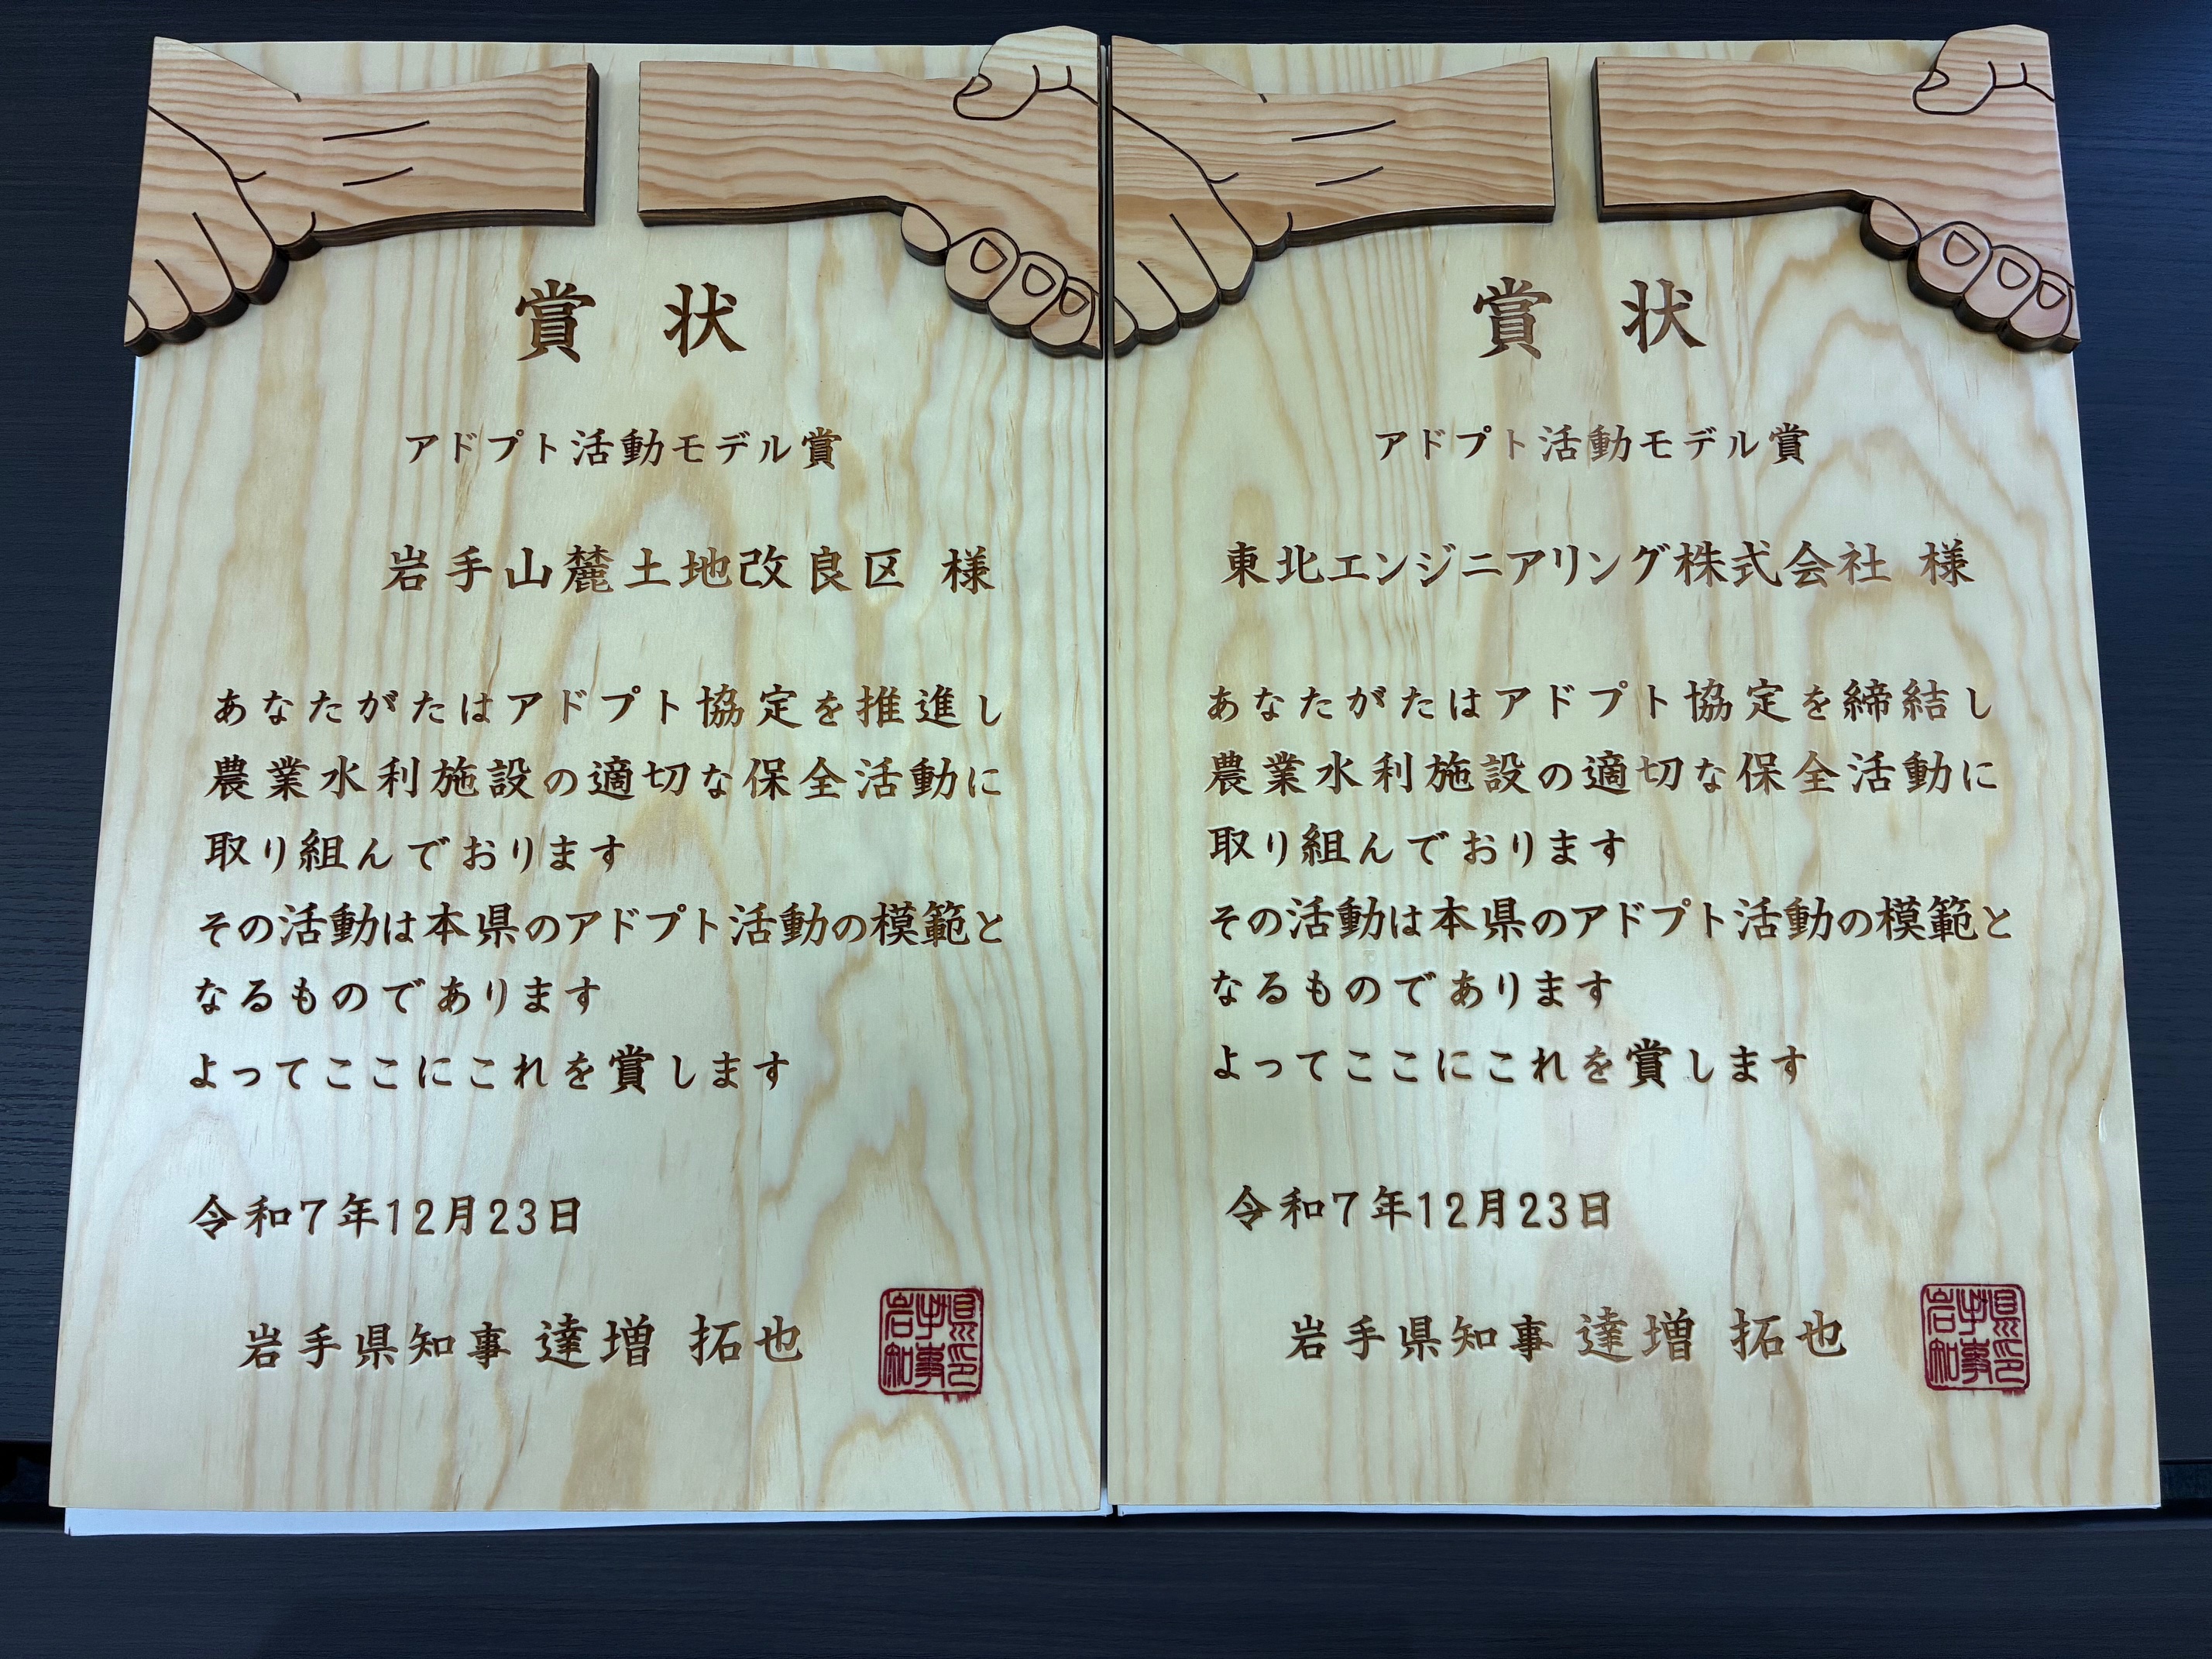 賞 状
アドプト活動モデル賞
岩手山麓土地改良区 様
あなたがたはアドプト協定を推進し
農業水利施設の適切な保全活動に
取り組んでおります
その活動は本県のアドプト活動の模範と
なるものであります
よってここにこれを賞します
令和7年12月23日
岩手県知事 達増 拓也
岩手県知事印
賞 状
アドプト活動モデル賞
東北エンジニアリング株式会社 様
あなたがたはアドプト協定を締結し
農業水利施設の適切な保全活動に
取り組んでおります
その活動は本県のアドプト活動の模範と
なるものであります
よってここにこれを賞します
令和7年12月23日
岩手県知事 達増 拓也
岩手県知事印